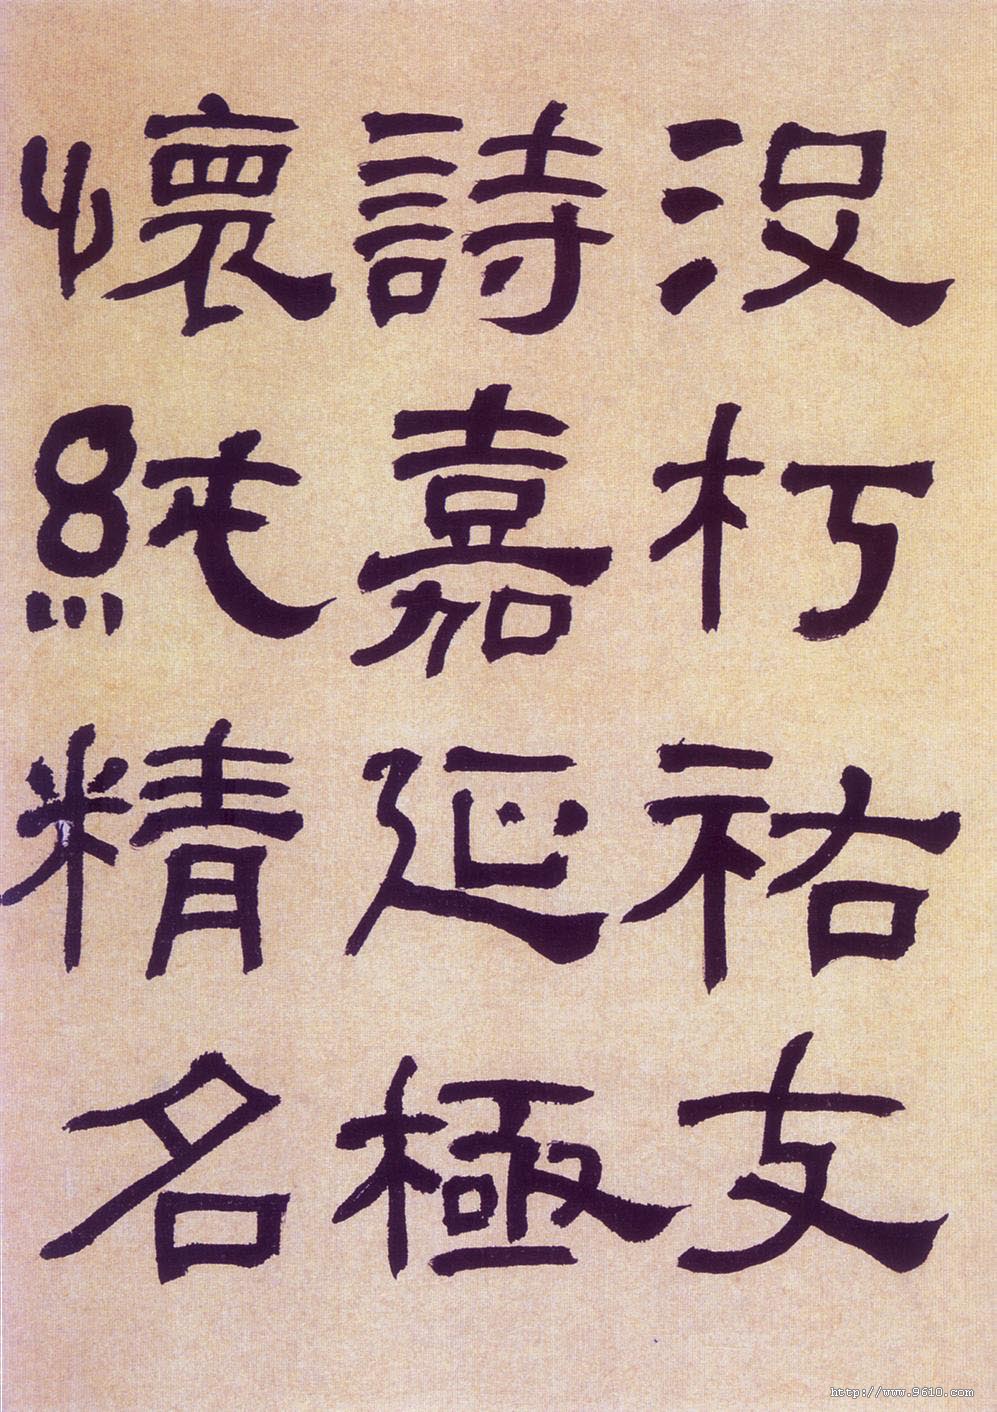 没朽祐支
詩嘉延極
懷純精名
http://www.9610.com